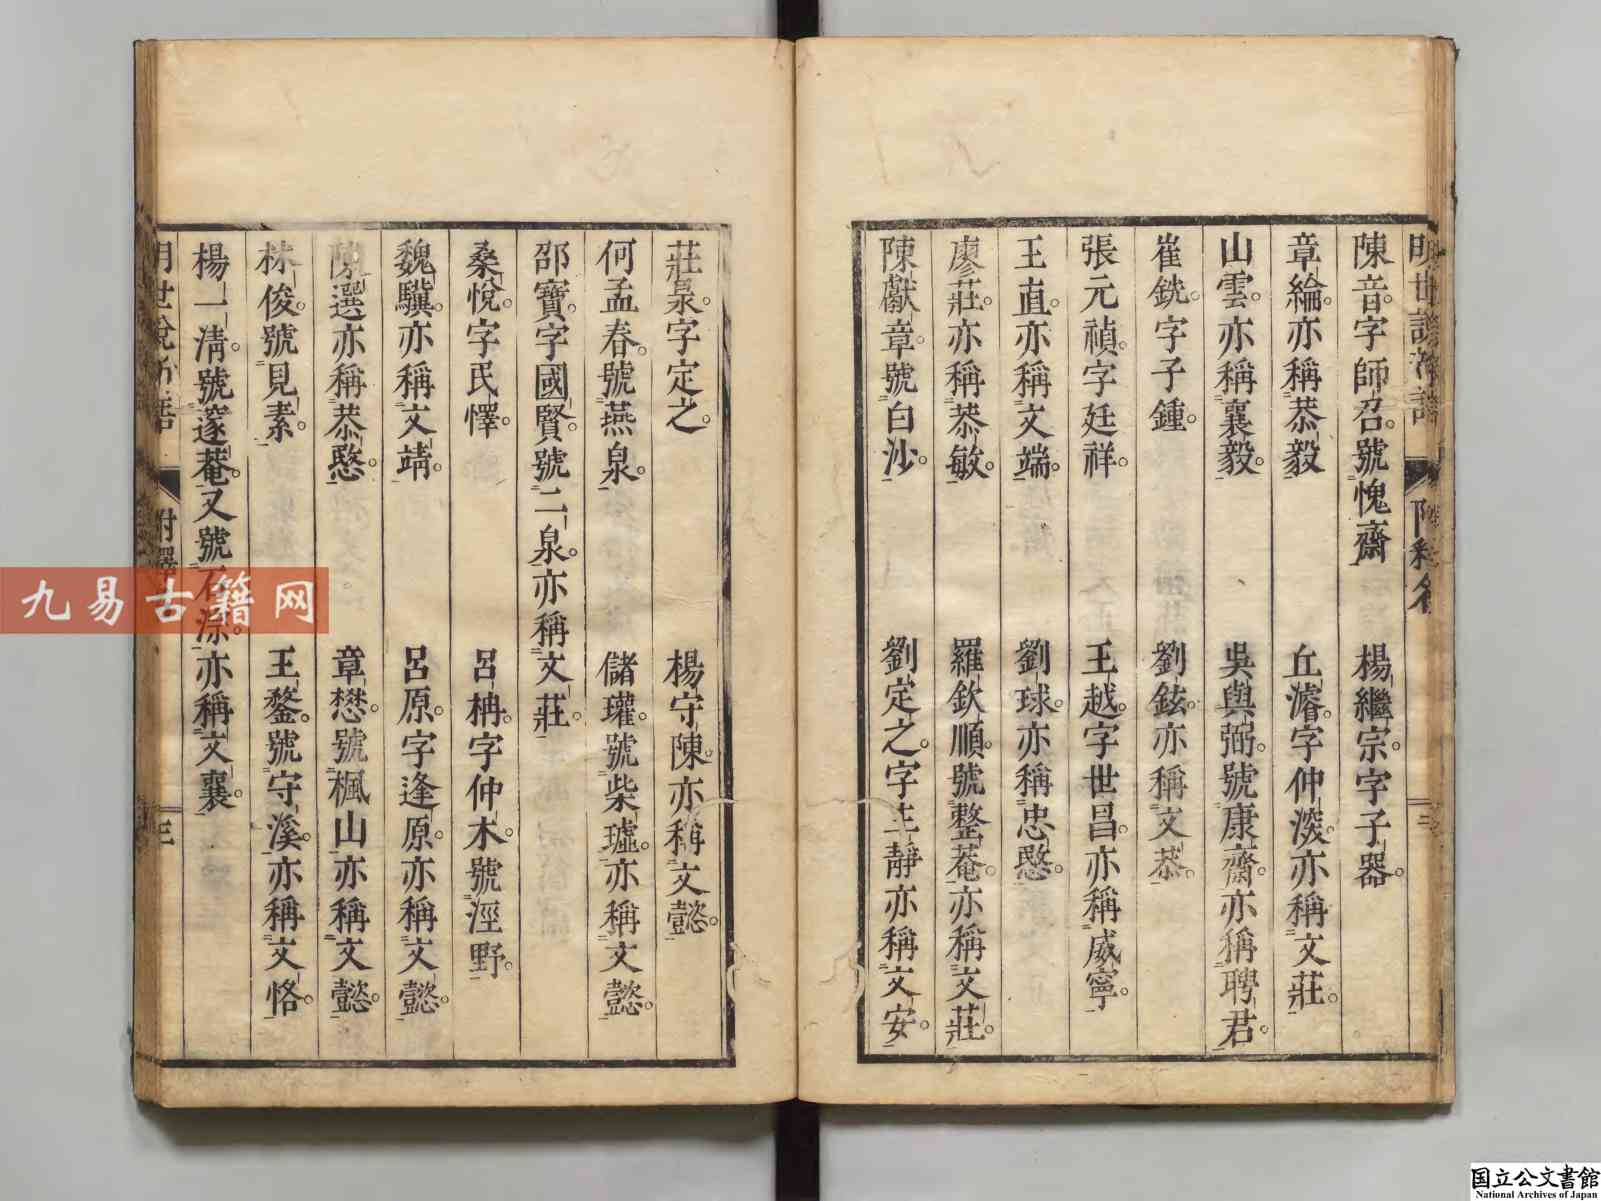 陳音。字師召。號愧齋　楊繼宗。字子器。
章綸。亦稱恭毅　丘濬。字仲深。亦稱文莊。
山雲。亦稱襄毅。　吳與弼。號康齋。亦稱聘君。
崔銑。字子鍾。　劉鉉。亦稱文恭。
張元禎。字廷祥。　王越。字世昌。亦稱威寧。
王直。亦稱文端。　劉球。亦稱忠愍。
廖莊。亦稱恭敏。　羅欽順。號整菴。亦稱文莊。
陳獻章。號白沙。　劉定之。字主靜。亦稱文安。
莊㫤。字定之。　楊守陳。亦稱文懿。
何孟春。號燕泉。　儲瓘。號柴墟。亦稱文懿。
邵寶。字國賢。號二泉。亦稱文莊。
桑悅。字民懌。　呂柟。字仲木。號涇野。
魏驥。亦稱文靖。　呂原。字逢原。亦稱文懿。
陳選亦稱恭愍。　章懋。號楓山亦稱文懿。
林俊。號見素。　王鏊。號守溪。亦稱文恪。
楊一清。號邃菴。又號石淙。亦稱文襄。
附釋
三
九易古籍网
国立公文書館
National Archives of Japan